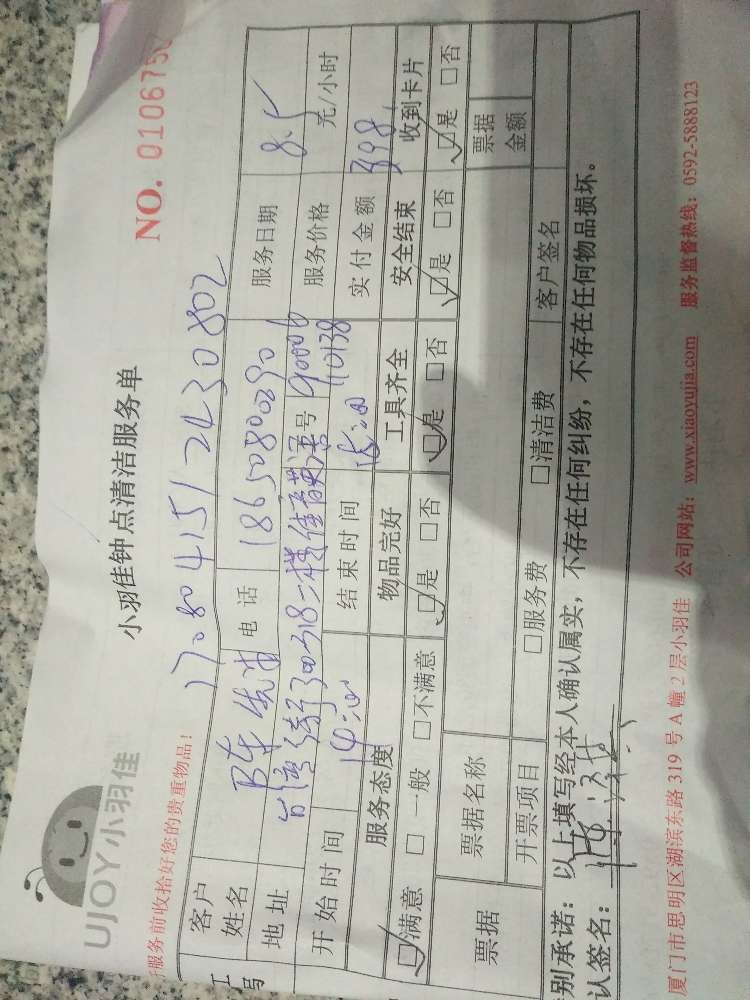 UJOY小羽佳
小羽佳钟点清洁服务单
NO. 010675
服务前收拾好您的贵重物品!
1708041512430802
客户姓名 陈先生 电话 18650800290 服务日期 8.5
地址 服务价格 元/小时
号
开始时间 14:00 结束时间 实付金额 398
服务态度 物品完好 工具齐全 安全结束 收到卡片
☑满意 □一般 □不满意 ☑是 □否 ☑是 □否 ☑是 □否 ☑是 □否
票据 票据名称 票据金额
开票项目 □服务费 □清洁费 客户签名
别承诺:以上填写经本人确认属实,不存在任何纠纷,不存在任何物品损坏。
认签名:
厦门市思明区湖滨东路 319 号 A 幢 2 层小羽佳 公司网站:www.xiaoyujia.com 服务监督热线:0592-5888123